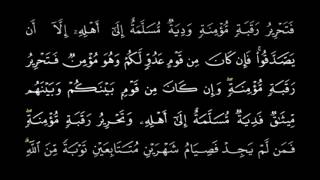 فَتَحْرِيرُ رَقَبَةٍ مُّؤْمِنَةٍ وَدِيَةٌ مُّسَلَّمَةٌ إِلَىٰٓ أَهْلِهِۦٓ إِلَّآ أَن
يَصَّدَّقُوا۟ ۚ فَإِن كَانَ مِن قَوْمٍ عَدُوٍّ لَّكُمْ وَهُوَ مُؤْمِنٌ فَتَحْرِيرُ
رَقَبَةٍ مُّؤْمِنَةٍ ۖ وَإِن كَانَ مِن قَوْمٍۭ بَيْنَكُمْ وَبَيْنَهُم
مِّيثَـٰقٌ فَدِيَةٌ مُّسَلَّمَةٌ إِلَىٰٓ أَهْلِهِۦ وَتَحْرِيرُ رَقَبَةٍ مُّؤْمِنَةٍ ۖ
فَمَن لَّمْ يَجِدْ فَصِيَامُ شَهْرَيْنِ مُتَتَابِعَيْنِ تَوْبَةً مِّنَ ٱللَّهِ ۗ